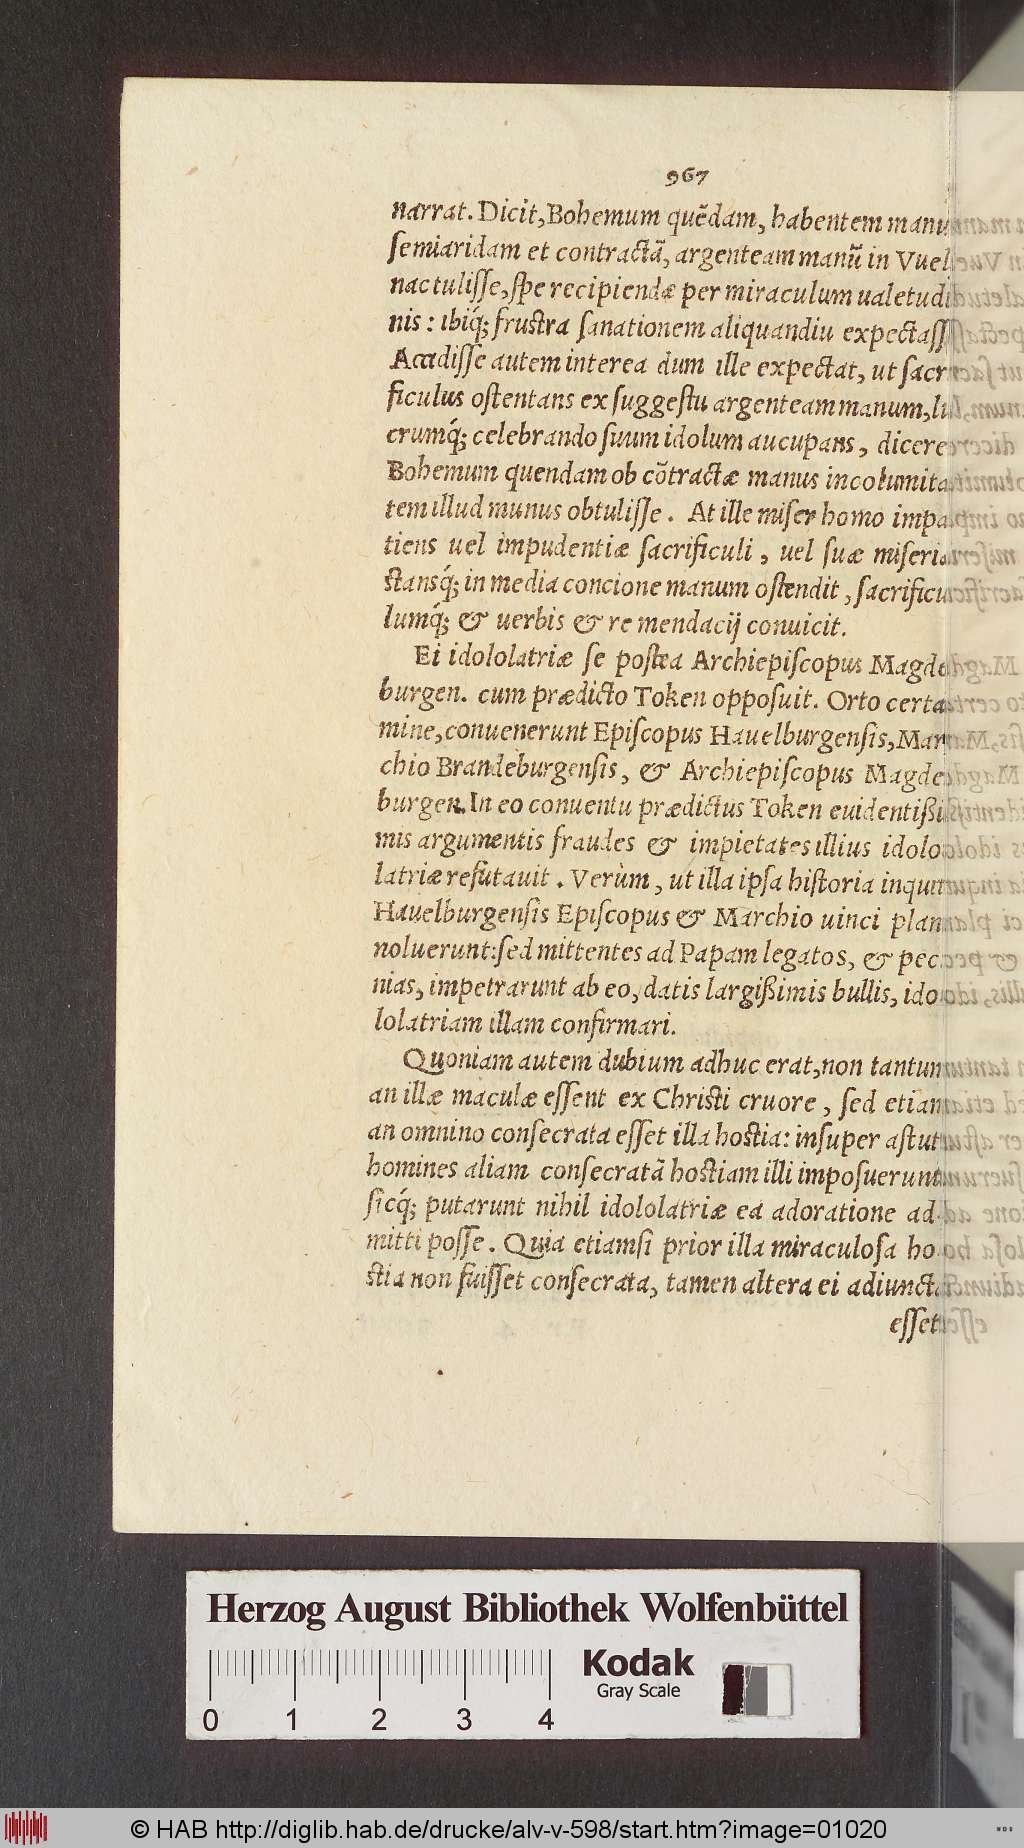 967
narrat. Dicit, Bohemum quẽdam, habentem manu
ſemiaridam et contractã, argenteam manũ in Vuel
nac tuliſſe, ſpe recipiendæ per miraculum ualetudi
nis: ibiq́; fruſtra ſanationem aliquandiu expectaſſ
Accidiſſe autem interea dum ille expectat, ut ſacr
ficulus oſtentans ex ſuggeſtu argenteam manum, lu
crumq́; celebrando ſuum idolum aucupans, dicere
Bohemum quendam ob cõtractæ manus incolumita
tem illud munus obtuliſſe. At ille miſer homo impa
tiens uel impudentiæ ſacrificuli, uel ſuæ miſeria
ſtansq́; in media concione manum oſtendit, ſacrificu
lumq́; & uerbis & re mendacij conuicit.
Ei idololatriæ ſe poſtea Archiepiſcopus Magde
burgen. cum prædicto Token oppoſuit. Orto certa
mine, conuenerunt Epiſcopus Hauelburgenſis, Mar
chio Brandeburgenſis, & Archiepiſcopus Magde
burgen. In eo conuentu prædictus Token euidentißi
mis argumentis fraudes & impietates illius idolo
latriæ refutauit. Verùm, ut illa ipſa hiſtoria inquit
Hauelburgenſis Epiſcopus & Marchio uinci plan
noluerunt: ſed mittentes ad Papam legatos, & pec
nias, impetrarunt ab eo, datis largißimis bullis, ido
lolatriam illam confirmari.
Quoniam autem dubium adhuc erat, non tantum
an illæ maculæ eſſent ex Chriſti cruore, ſed etiam
an omnino conſecrata eſſet illa hoſtia: inſuper aſtut
homines aliam conſecratã hoſtiam illi impoſuerunt
ſicq́; putarunt nihil idololatriæ ea adoratione ad
mitti poſſe. Quia etiamſi prior illa miraculoſa ho
ſtia non fuiſſet conſecrata, tamen altera ei adiuncta
eſſet
Herzog August Bibliothek Wolfenbüttel
0 1 2 3 4
Kodak
Gray Scale
© HAB http://diglib.hab.de/drucke/alv-v-598/start.htm?image=01020